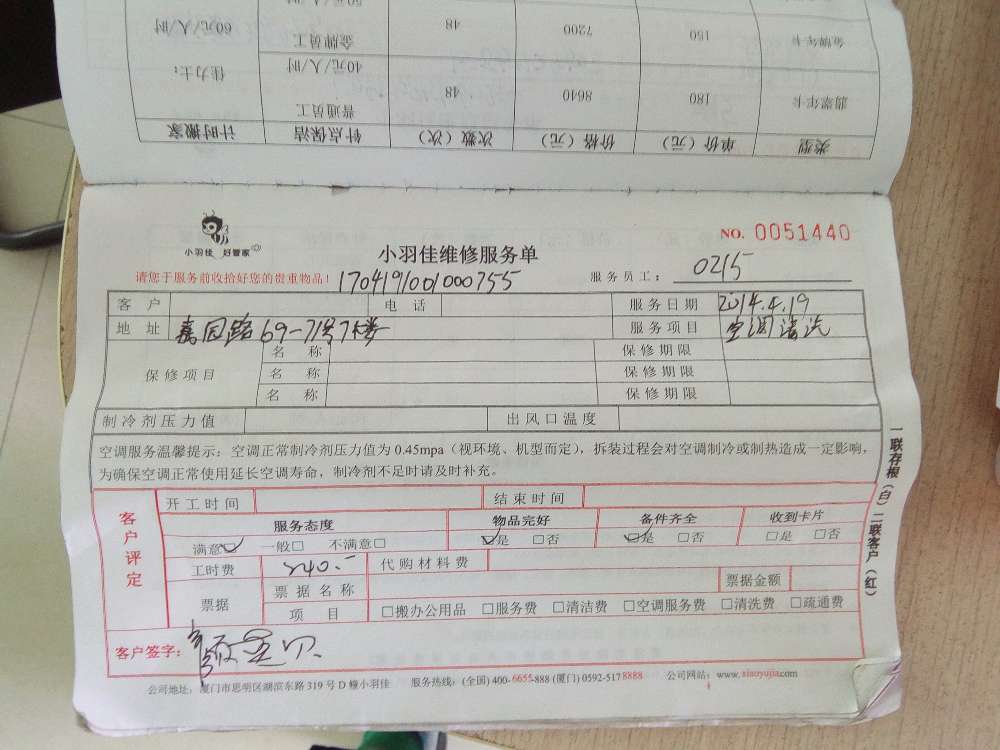 50元/人/时
60元/人/时 金牌员工 48 7200 150 金牌年卡
佳力士： 40元/人/时
普通员工 48 8640 180 翡翠年卡
计时搬家 针点保洁 次数（次） 价格（元） 单价（元） 类型
小羽佳 好管家
小羽佳维修服务单
NO. 0051440
请您于服务前收拾好您的贵重物品！ 1704191001000755 服务员工： 0215
客户 电话 服务日期 2014.4.19
地址 嘉园路69-71号7楼 服务项目 空调清洗
保修项目
名称 保修期限
名称 保修期限
名称 保修期限
制冷剂压力值 出风口温度
空调服务温馨提示：空调正常制冷剂压力值为 0.45mpa（视环境、机型而定），拆装过程会对空调制冷或制热造成一定影响，
为确保空调正常使用延长空调寿命，制冷剂不足时请及时补充。
客户评定
开工时间 结束时间
服务态度 物品完好 备件齐全 收到卡片
满意☑ 一般□ 不满意□ ☑是 □否 ☑是 □否 □是 □否
工时费 240.- 代购材料费
票据 票据名称 票据金额
项目 □搬办公用品 □服务费 □清洁费 □空调服务费 □清洗费 □疏通费
客户签字：
公司地址：厦门市思明区湖滨东路 319 号 D 幢小羽佳 服务热线：(全国) 400-6655-888 (厦门) 0592-5178888 公司网站：www.xiaoyujia.com
一联存根（白）二联客户（红）